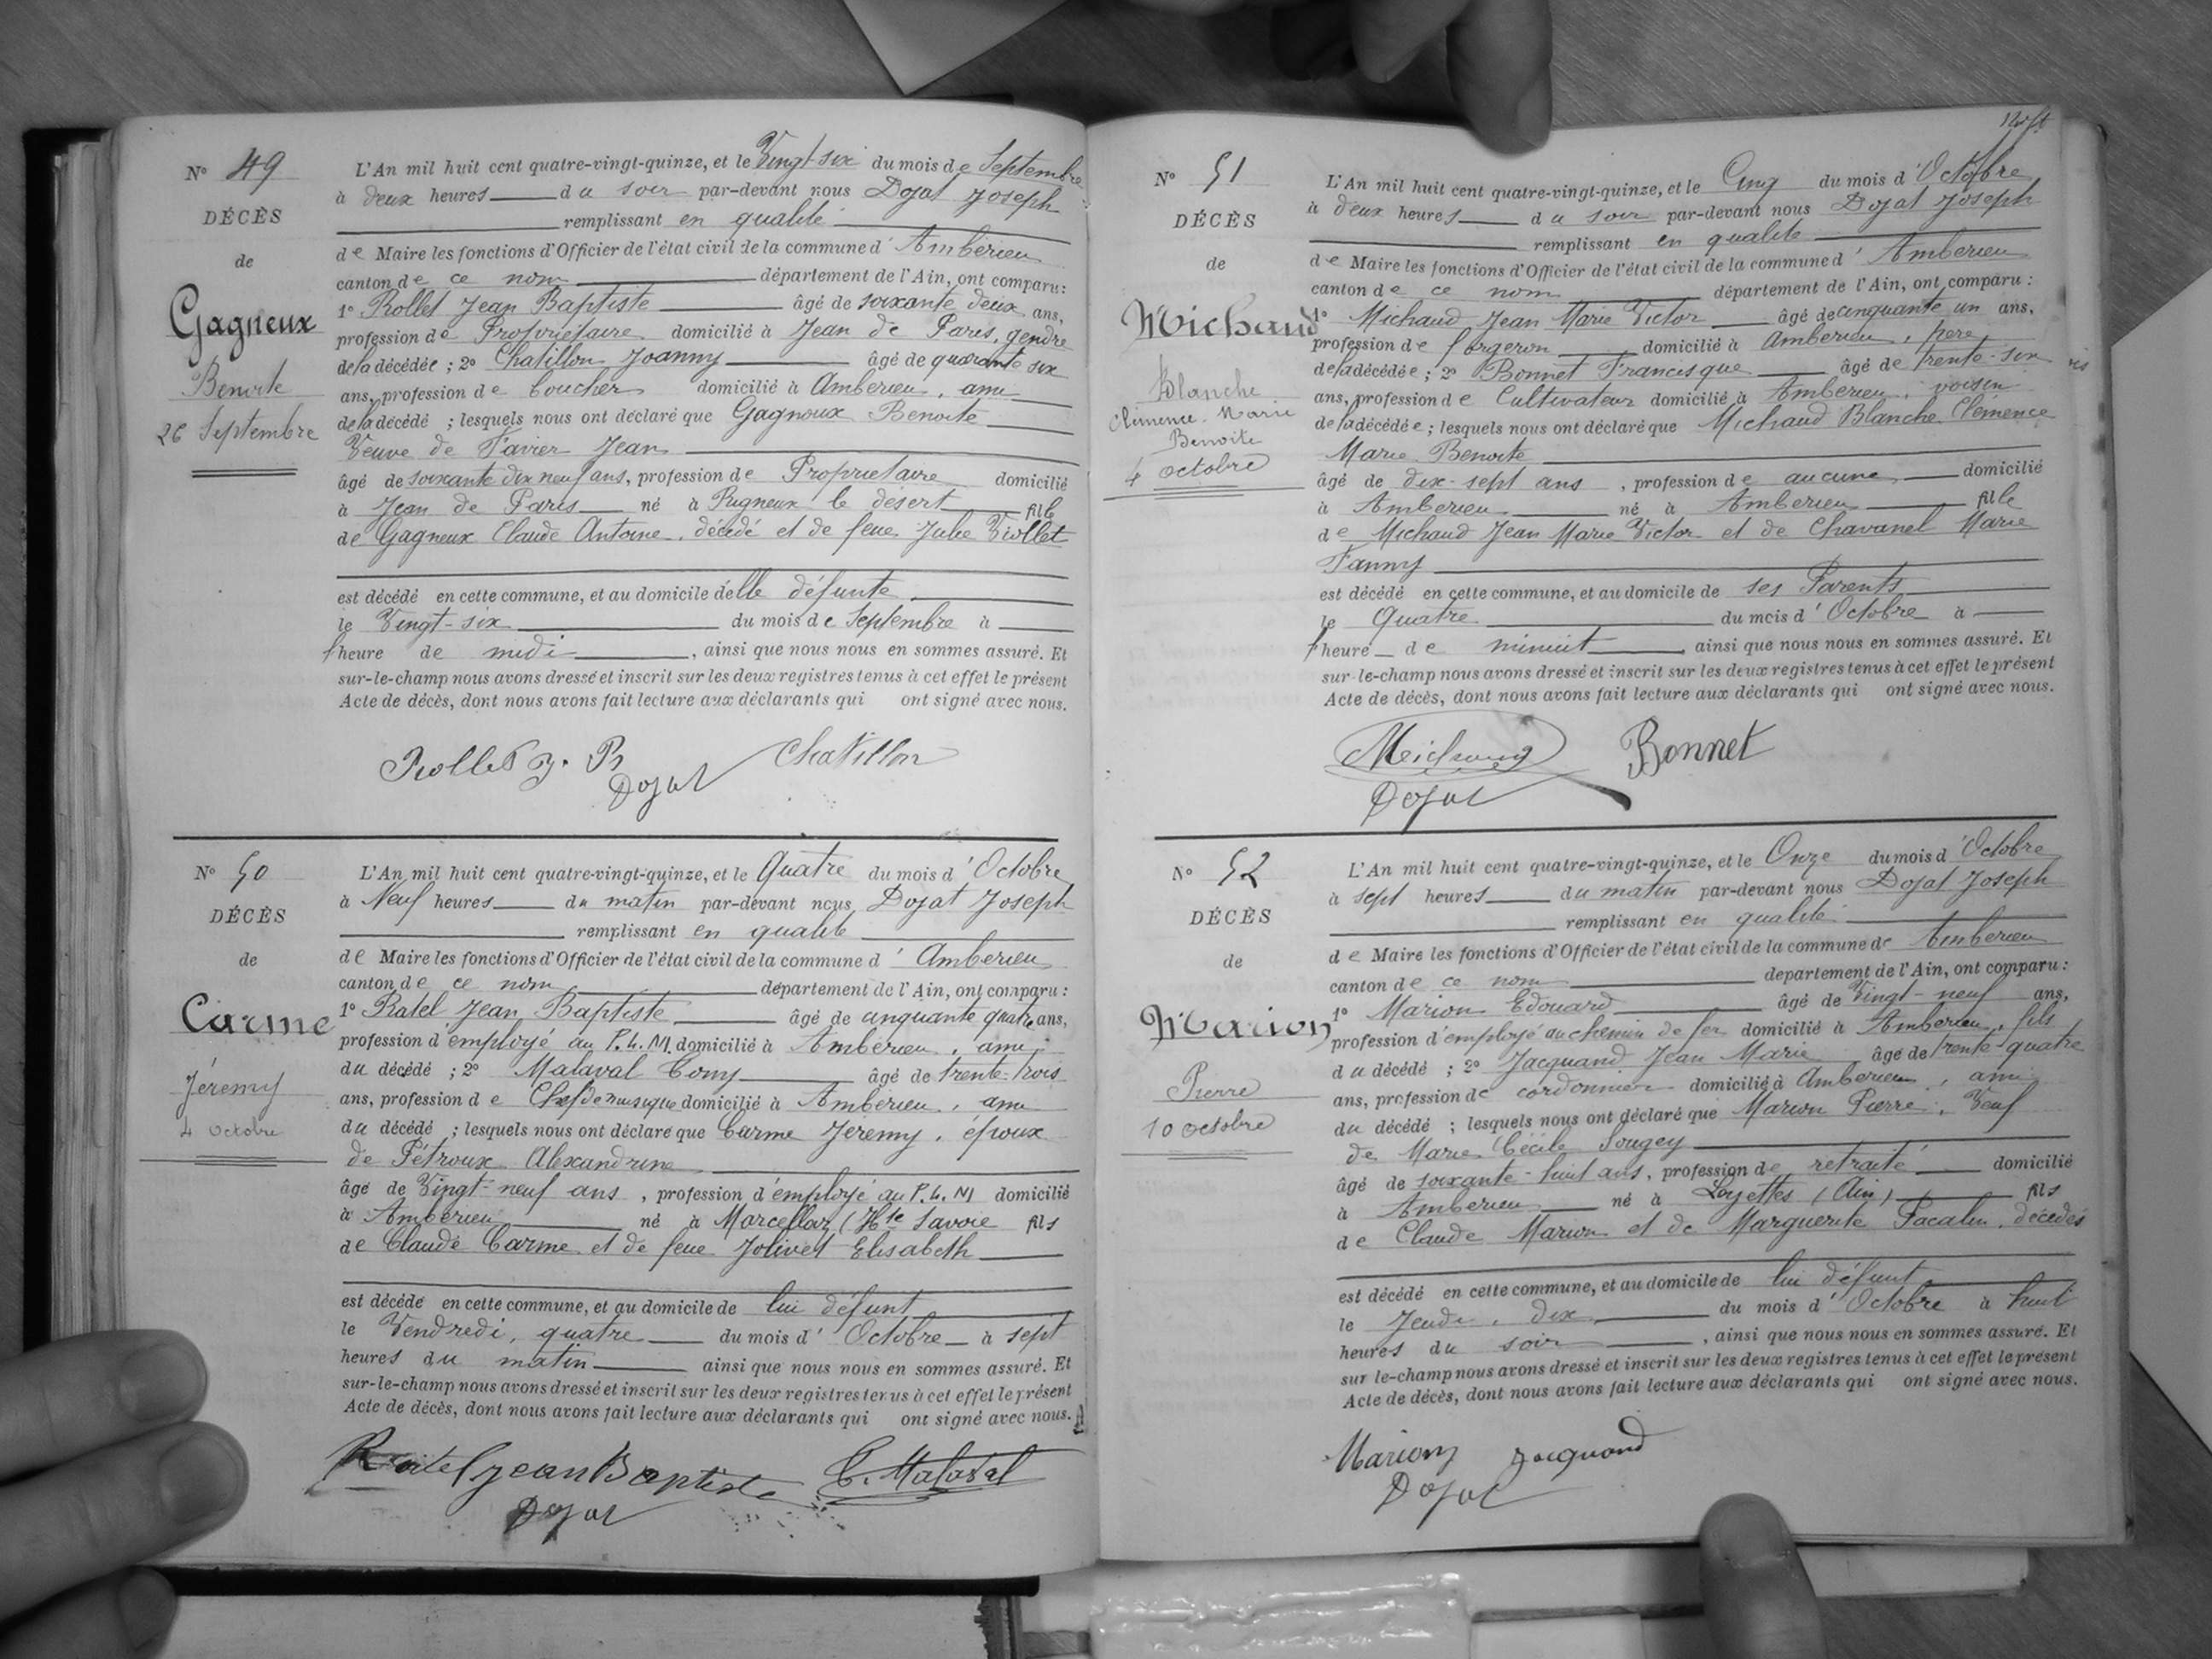 Nº 49
DÉCÈS
de
Gagneux
Benoite
26 Septembre
L'An mil huit cent quatre-vingt-quinze, et le Vingt-six du mois de Septembre
à deux heures du soir par-devant nous Dojat Joseph
remplissant en qualité
de Maire les fonctions d'Officier de l'état civil de la commune d'Ambérieu
canton de ce nom département de l'Ain, ont comparu:
1º Rollet Jean Baptiste âgé de soixante deux ans,
profession de Propriétaire domicilié à Jean de Paris, gendre
de la décédée ; 2º Chatillon Joanny âgé de quarante six
ans, profession de boucher domicilié à Ambérieu, ami
de la décédé ; lesquels nous ont déclaré que Gagneux Benoite
Veuve de Favier Jean
âgé de soixante dix neuf ans, profession de Propriétaire domicilié
à Jean de Paris né à Rigneux le désert fille
de Gagneux Claude Antoine, décédé et de feue Julie Viollet
est décédé en cette commune, et au domicile d'elle défunte
le Vingt-six du mois de Septembre à
heure de midi, ainsi que nous nous en sommes assuré. Et
sur-le-champ nous avons dressé et inscrit sur les deux registres tenus à cet effet le présent
Acte de décès, dont nous avons fait lecture aux déclarants qui ont signé avec nous.
Rollet J. B Chatillon
Dojat
Nº 50
DÉCÈS
de
Carme
Jéremy
4 Octobre
L'An mil huit cent quatre-vingt-quinze, et le Quatre du mois d'Octobre
à Neuf heures du matin par-devant nous Dojat Joseph
remplissant en qualité
de Maire les fonctions d'Officier de l'état civil de la commune d'Ambérieu
canton de ce nom département de l'Ain, ont comparu:
1º Ratel Jean Baptiste âgé de cinquante quatre ans,
profession d'employé au P.L.M. domicilié à Ambérieu, ami
du décédé ; 2º Malaval Comy âgé de trente-trois
ans, profession de Chef de musique domicilié à Ambérieu, ami
du décédé ; lesquels nous ont déclaré que Carme Jeremy, époux
de Pétroux Alexandrine
âgé de Vingt-neuf ans, profession d'employé au P.L.M domicilié
à Ambérieu né à Marcellaz (Hte Savoie fils
de Claude Carme et de feue Jolivet Elisabeth
est décédé en cette commune, et au domicile de lui défunt
le Vendredi, quatre du mois d'Octobre à sept
heures du matin ainsi que nous nous en sommes assuré. Et
sur-le-champ nous avons dressé et inscrit sur les deux registres tenus à cet effet le présent
Acte de décès, dont nous avons fait lecture aux déclarants qui ont signé avec nous.
Ratel jean Baptiste C. Malaval
Dojat
Nº 51
DÉCÈS
de
Michaud
Blanche
Clémence Marie
Benoite
4 octobre
L'An mil huit cent quatre-vingt-quinze, et le Cinq du mois d'Octobre
à deux heures du soir par-devant nous Dojat Joseph
remplissant en qualité
de Maire les fonctions d'Officier de l'état civil de la commune d'Ambérieu
canton de ce nom département de l'Ain, ont comparu:
1º Michaud Jean Marie Victor âgé de cinquante un ans,
profession de forgeron domicilié à Ambérieu, père
de la décédée ; 2º Bonnet Francisque âgé de trente-six
ans, profession de Cultivateur domicilié à Ambérieu, voisin
de la décédée ; lesquels nous ont déclaré que Michaud Blanche Clémence
Marie Benoite
âgé de dix-sept ans, profession de aucune domicilié
à Ambérieu né à Ambérieu fille
de Michaud Jean Marie Victor et de Chavanel Marie
Fanny
est décédé en cette commune, et au domicile de ses Parents
le Quatre du mois d'Octobre à
heure de minuit, ainsi que nous nous en sommes assuré. Et
sur-le-champ nous avons dressé et inscrit sur les deux registres tenus à cet effet le présent
Acte de décès, dont nous avons fait lecture aux déclarants qui ont signé avec nous.
Michaud Bonnet
Dojat
Nº 52
DÉCÈS
de
Marion
Pierre
10 octobre
L'An mil huit cent quatre-vingt-quinze, et le Onze du mois d'Octobre
à sept heures du matin par-devant nous Dojat Joseph
remplissant en qualité
de Maire les fonctions d'Officier de l'état civil de la commune de Ambérieu
canton de ce nom département de l'Ain, ont comparu:
1º Marion Edouard âgé de Vingt-neuf ans,
profession d'employé au chemin de fer domicilié à Ambérieu, fils
du décédé ; 2º Jacquand Jean Marie âgé de trente quatre
ans, profession de cordonnier domicilié à Ambérieu, ami
du décédé ; lesquels nous ont déclaré que Marion Pierre, Veuf
de Marie Cécile Sougey
âgé de soixante-huit ans, profession de retraité domicilié
à Ambérieu né à Loyettes (Ain) fils
de Claude Marion et de Marguerite Pacalin, décédés
est décédé en cette commune, et au domicile de lui défunt
le Jeudi, dix du mois d'Octobre à huit
heures du soir, ainsi que nous nous en sommes assuré. Et
sur le-champ nous avons dressé et inscrit sur les deux registres tenus à cet effet le présent
Acte de décès, dont nous avons fait lecture aux déclarants qui ont signé avec nous.
Marion Jacquand
Dojat